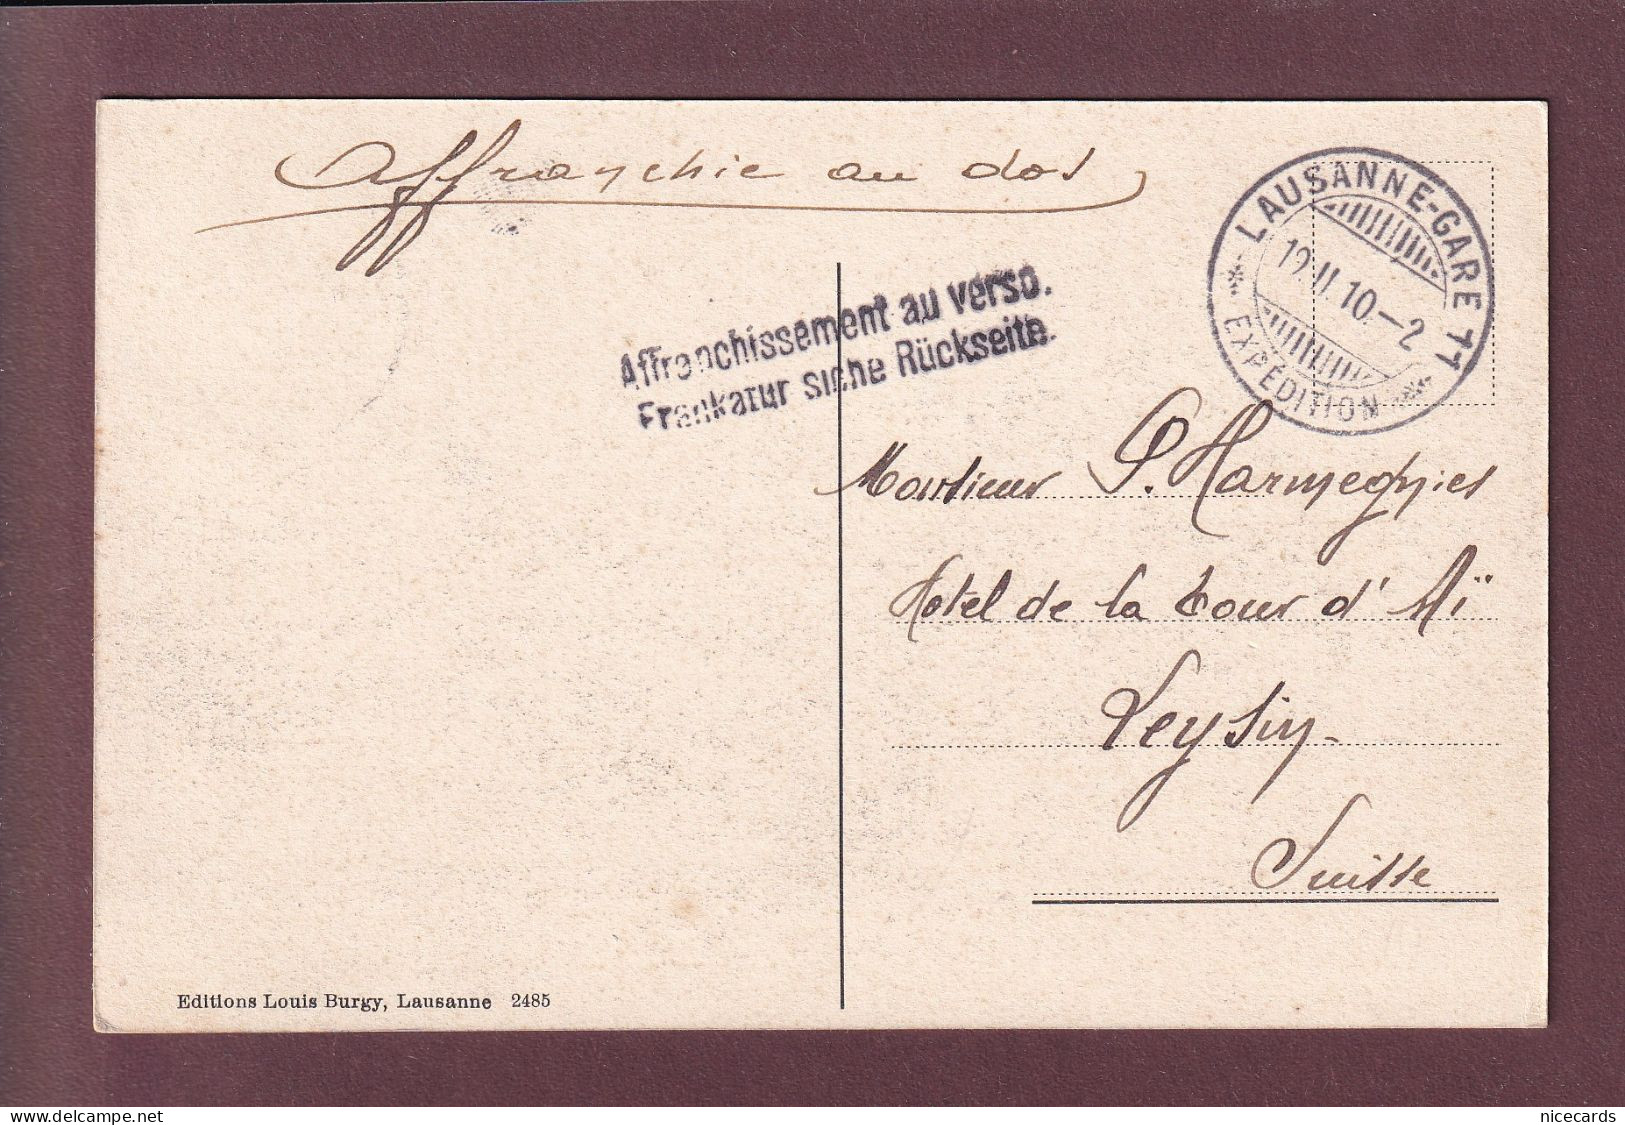 Affranchie au dos
LAUSANNE-GARE 11
19.II.10.-2
EXPÉDITION
Affranchissement au verso.
Frankatur siehe Rückseite.
Monsieur P. Harmegnies
Hotel de la tour d'Aï
Leysin-
Suisse
Editions Louis Burgy, Lausanne 2485
delcampe.net
nicecards